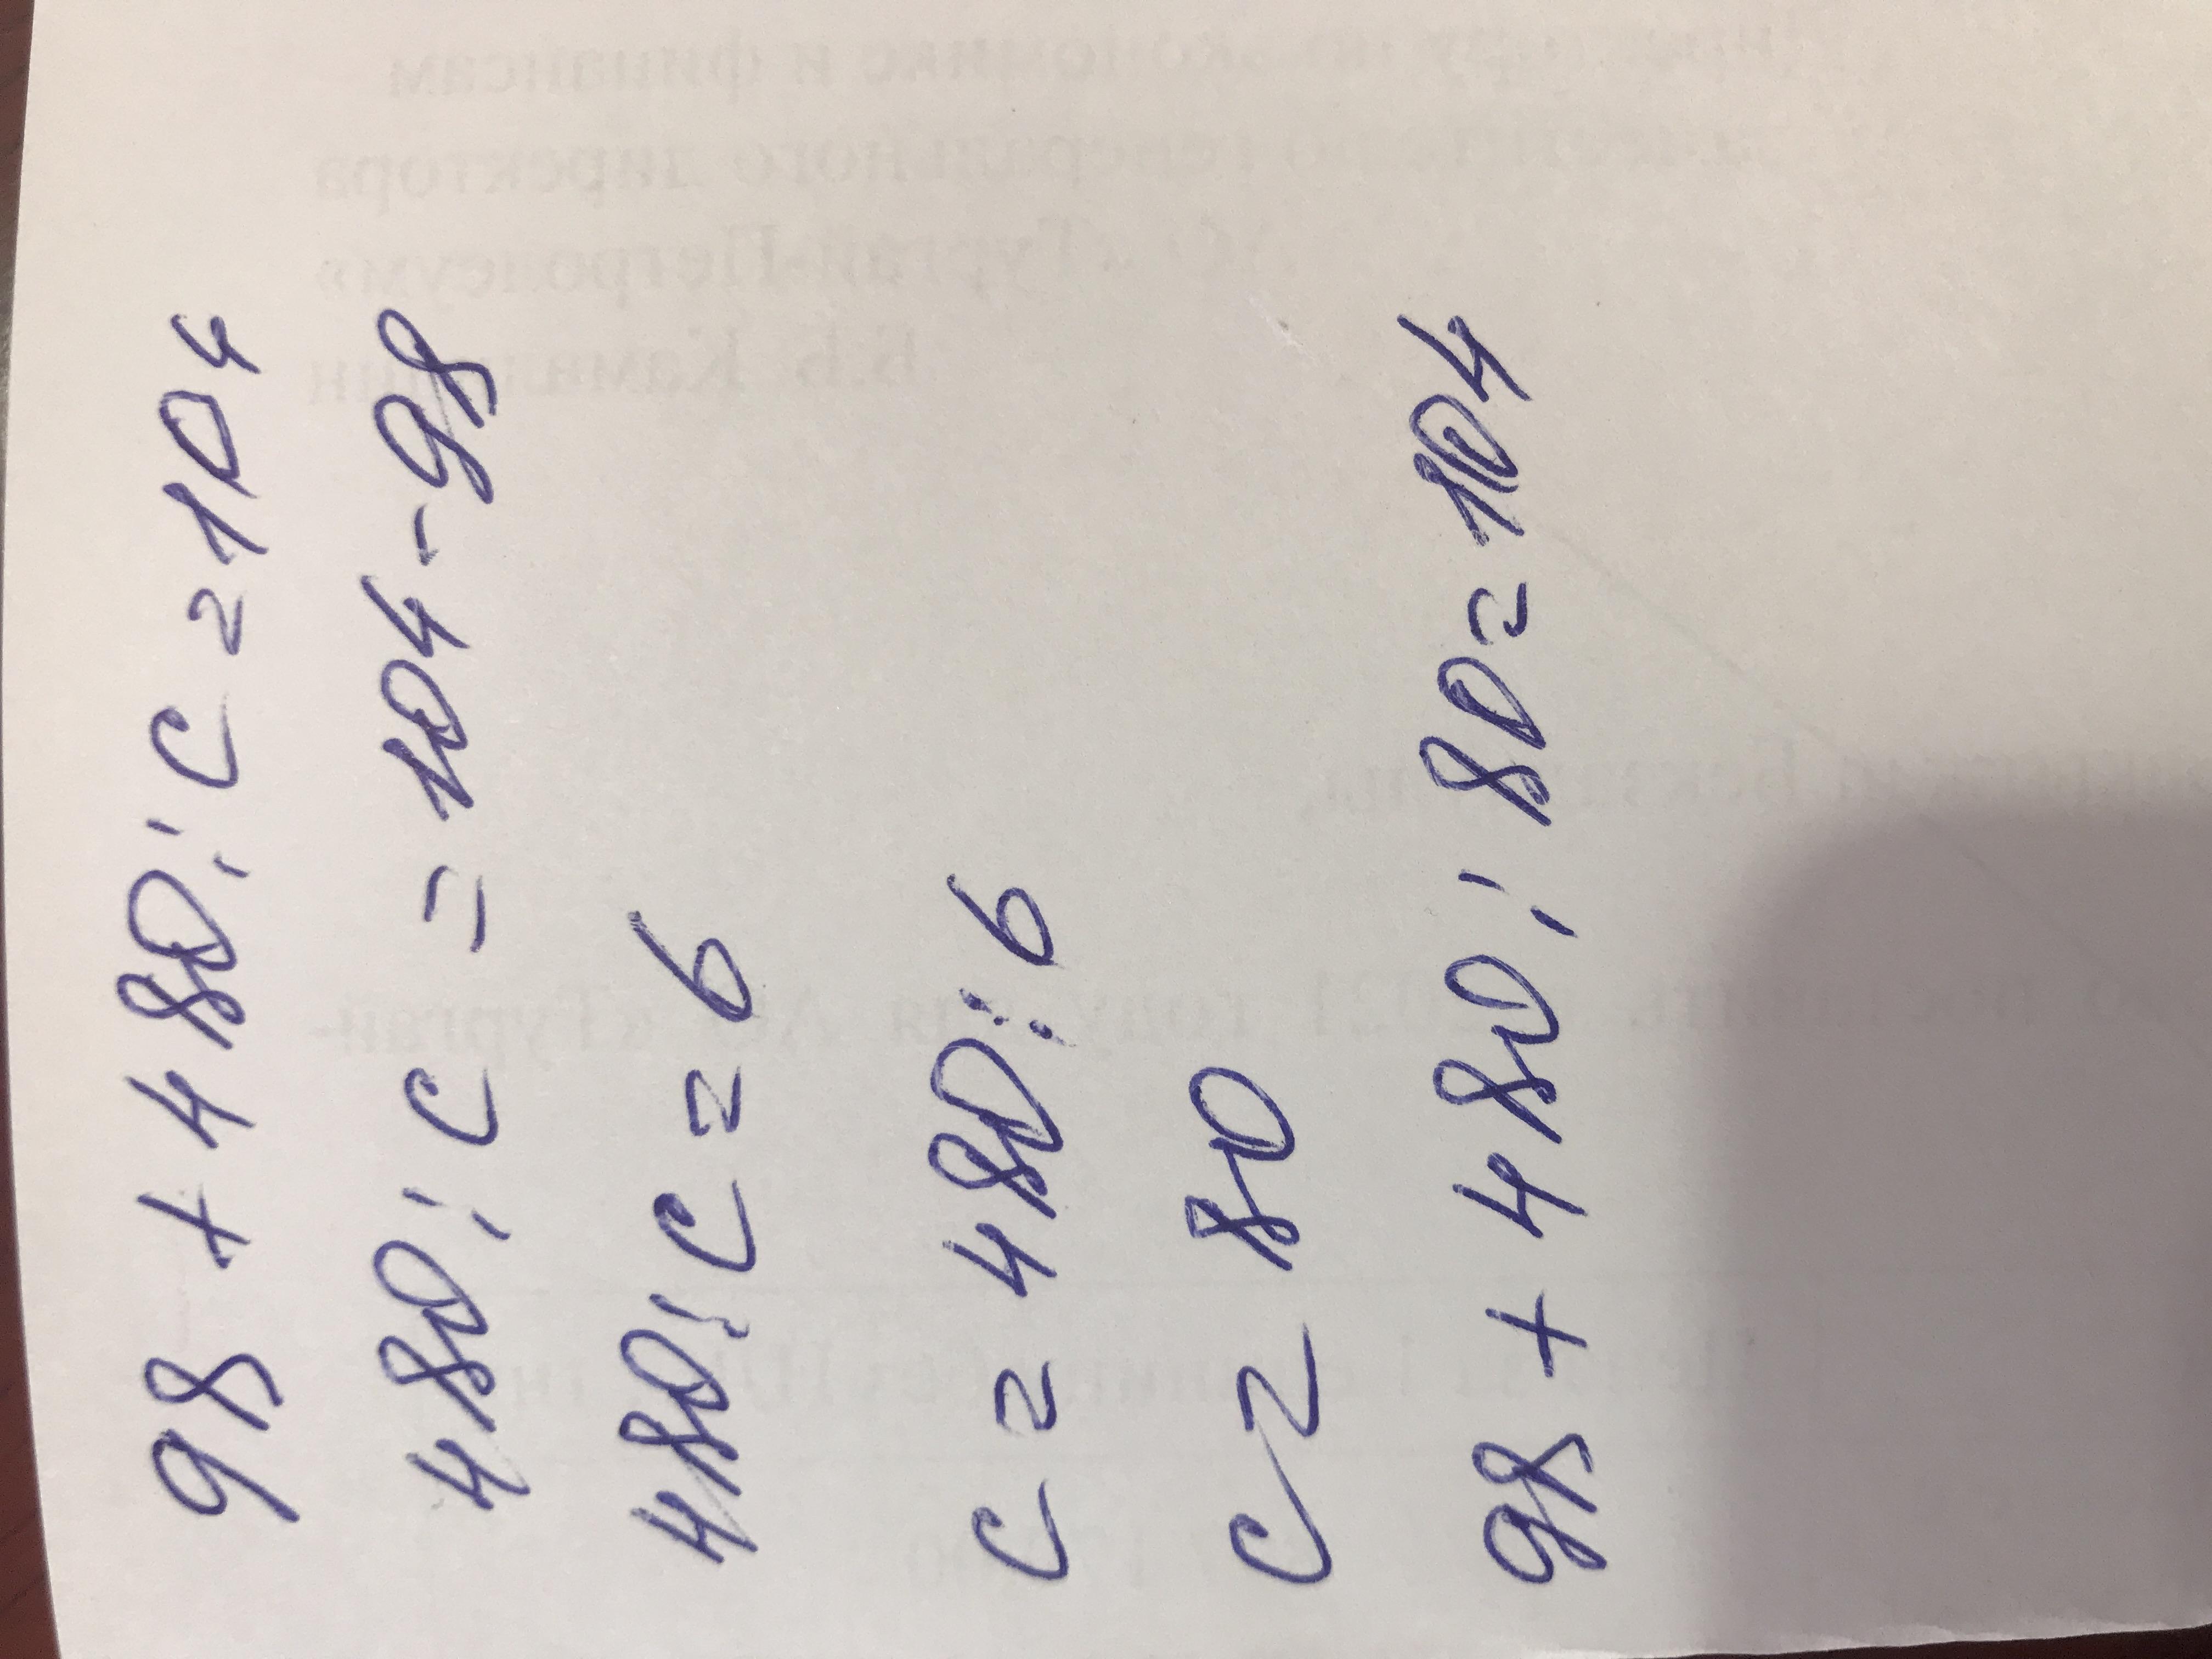 98 + 480 : c = 104
480 : c = 104 - 98
480 : c = 6
c = 480 : 6
c = 80
98 + 480 : 80 = 104